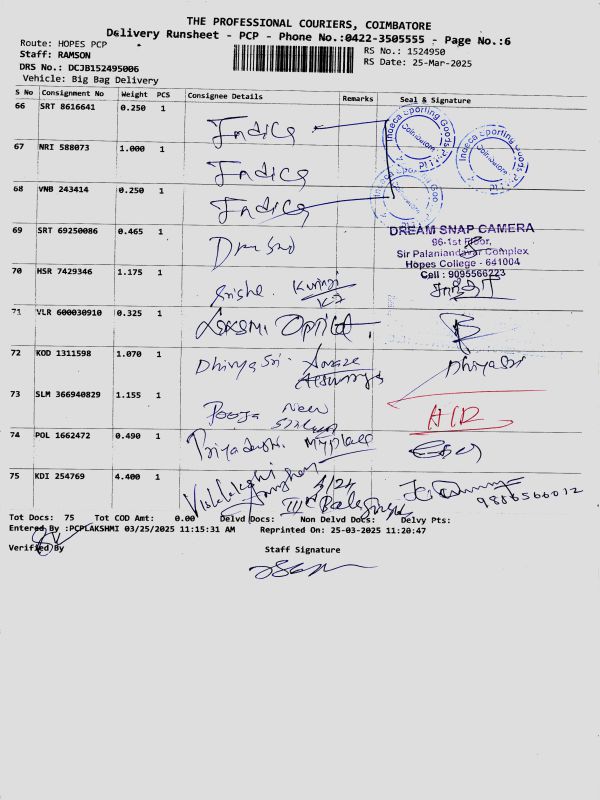 THE PROFESSIONAL COURIERS, COIMBATORE
Delivery Runsheet - PCP - Phone No.:0422-3505555 - Page No.:6
Route: HOPES PCP
RS No.: 1524950
Staff: RAMSON
RS Date: 25-Mar-2025
DRS No.: DCJB152495006
Vehicle: Big Bag Delivery
S No Consignment No Weight PCS Consignee Details Remarks Seal & Signature
66 SRT 8616641 0.250 1
Indica
67 NRI 588073 1.000 1
Indica
68 VNB 243414 0.250 1
Indica
Indeca Sporting Goods P Ltd
Coimbatore
69 SRT 69250086 0.465 1
DREAM SNAP CAMERA
96-1st Floor,
Sir Palaniandavar Complex
Hopes College - 641004
Cell : 9095566223
70 HSR 7429346 1.175 1
71 VLR 600030910 0.325 1
72 KOD 1311598 1.070 1
DhivyaSri
DhivyaSri
73 SLM 366940829 1.155 1
Pooja New
74 POL 1662472 0.490 1
Myplace
75 KDI 254769 4.400 1
9886566012
Tot Docs: 75 Tot COD Amt: 0.00 Delvd Docs: Non Delvd Docs: Delvy Pts:
Entered By :PCPLAKSHMI 03/25/2025 11:15:31 AM Reprinted On: 25-03-2025 11:20:47
Verified By
Staff Signature